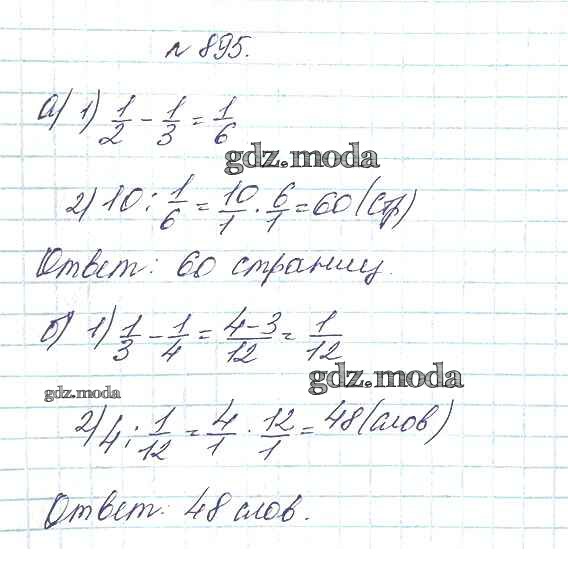 № 895.
а) 1) 1/2 - 1/3 = 1/6
gdz.moda
2) 10 : 1/6 = 10/1 · 6/1 = 60 (стр)
Ответ: 60 страниц.
б) 1) 1/3 - 1/4 = 4-3/12 = 1/12
gdz.moda
gdz.moda
2) 4 : 1/12 = 4/1 · 12/1 = 48 (слов)
Ответ: 48 слов.